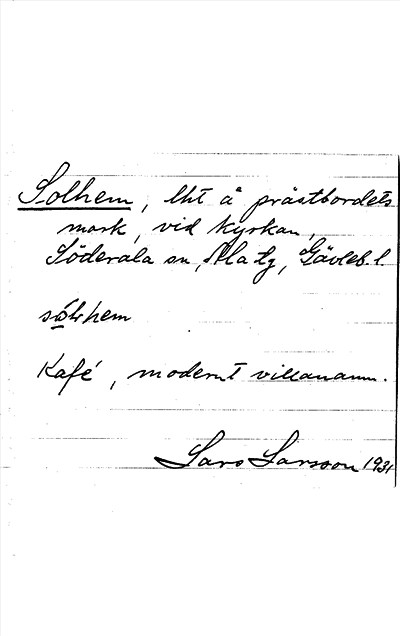 Solhem, lht å prästbordets
mark, vid kyrkan,
Söderala sn, Ala tg, Gävleb. l.
hem
Kafé, modernt villanamn.
Lars Larsson 1931